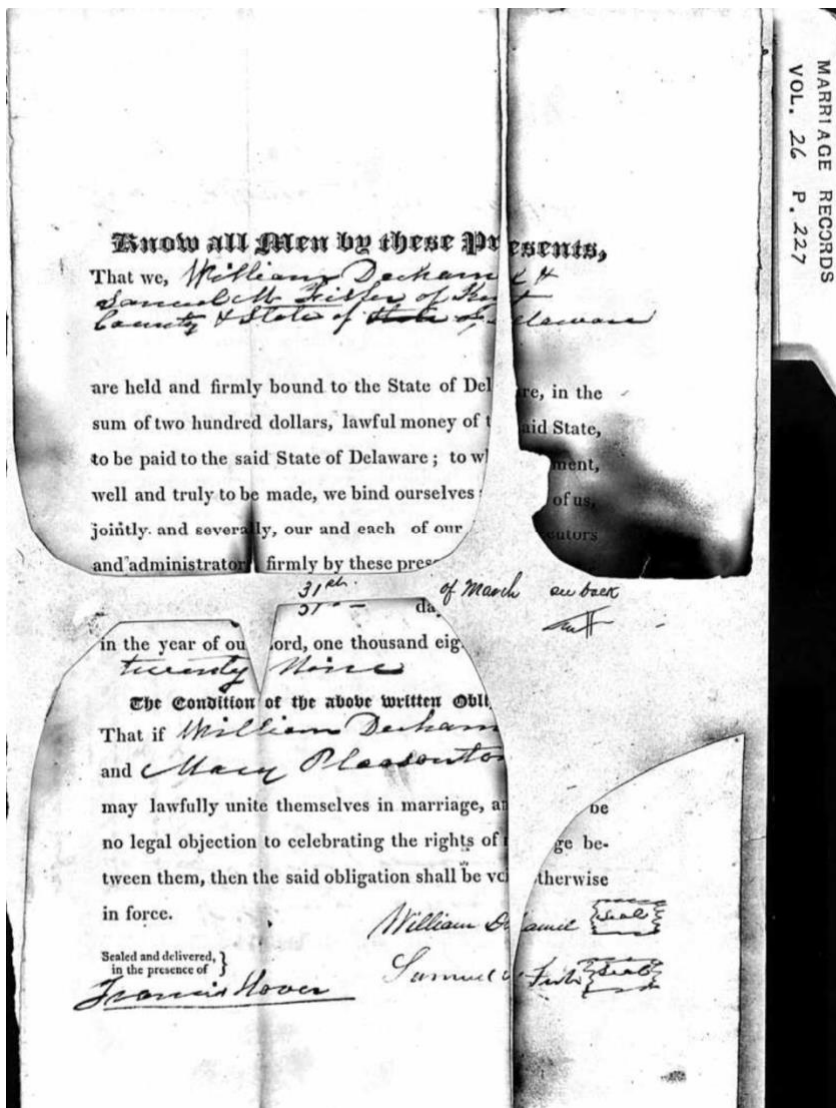 MARRIAGE RECORDS
VOL. 26 P. 227
Know all Men by these Presents,
That we, William Decham &
Samuel M. Fisher of Kent
County & State of Delaware
are held and firmly bound to the State of Del re, in the
sum of two hundred dollars, lawful money of t aid State,
to be paid to the said State of Delaware; to wh ment,
well and truly to be made, we bind ourselves of us,
jointly. and severally, our and each of our cutors
and administrator firmly by these pres
31st of March on back
31st da
in the year of ou ord, one thousand eig
twenty Nine
The Condition of the above written Obli
That if William Decham
and Mary Pleasonton
may lawfully unite themselves in marriage, an be
no legal objection to celebrating the rights of ge be-
tween them, then the said obligation shall be voi therwise
in force.
William D amiel Seal
Sealed and delivered,
in the presence of
Samuel Seal
Francis Hover